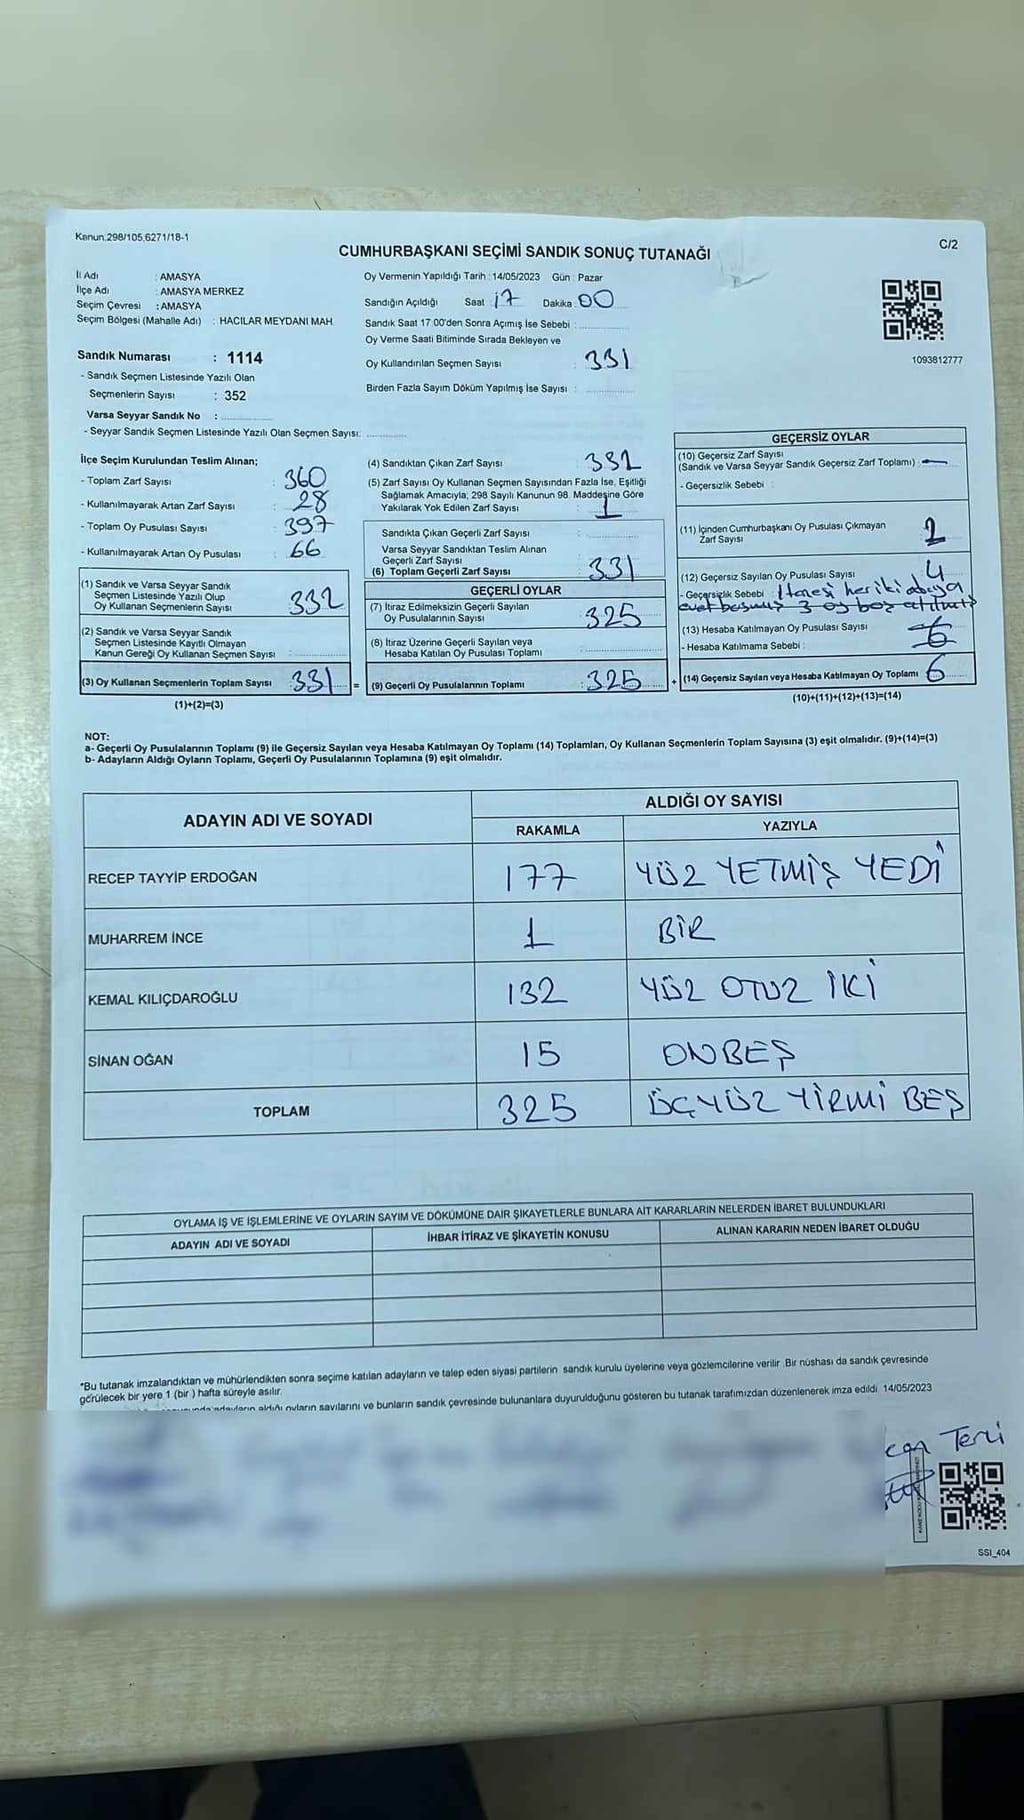 Kanun.298/105,6271/18-1
C/2
CUMHURBAŞKANI SEÇİMİ SANDIK SONUÇ TUTANAĞI
İl Adı : AMASYA
İlçe Adı : AMASYA MERKEZ
Seçim Çevresi : AMASYA
Seçim Bölgesi (Mahalle Adı) : HACILAR MEYDANI MAH.
Sandık Numarası : 1114
- Sandık Seçmen Listesinde Yazılı Olan
Seçmenlerin Sayısı : 352
Varsa Seyyar Sandık No :
- Seyyar Sandık Seçmen Listesinde Yazılı Olan Seçmen Sayısı:
Oy Vermenin Yapıldığı Tarih : 14/05/2023 Gün : Pazar
Sandığın Açıldığı Saat 17 Dakika 00
Sandık Saat 17:00'den Sonra Açımış İse Sebebi :
Oy Verme Saati Bitiminde Sırada Bekleyen ve
Oy Kullandırılan Seçmen Sayısı : 331
Birden Fazla Sayım Döküm Yapılmış İse Sayısı :
1093812777
İlçe Seçim Kurulundan Teslim Alınan;
- Toplam Zarf Sayısı : 360
- Kullanılmayarak Artan Zarf Sayısı : 28
- Toplam Oy Pusulası Sayısı : 397
- Kullanılmayarak Artan Oy Pusulası : 66
(1) Sandık ve Varsa Seyyar Sandık
Seçmen Listesinde Yazılı Olup
Oy Kullanan Seçmenlerin Sayısı : 332
(2) Sandık ve Varsa Seyyar Sandık
Seçmen Listesinde Kayıtlı Olmayan
Kanun Gereği Oy Kullanan Seçmen Sayısı :
(3) Oy Kullanan Seçmenlerin Toplam Sayısı : 331 =
(1)+(2)=(3)
(4) Sandıktan Çıkan Zarf Sayısı : 332
(5) Zarf Sayısı Oy Kullanan Seçmen Sayısından Fazla İse, Eşitliği
Sağlamak Amacıyla; 298 Sayılı Kanunun 98. Maddesine Göre
Yakılarak Yok Edilen Zarf Sayısı : 1
Sandıkta Çıkan Geçerli Zarf Sayısı :
Varsa Seyyar Sandıktan Teslim Alınan
Geçerli Zarf Sayısı :
(6) Toplam Geçerli Zarf Sayısı : 331
GEÇERLİ OYLAR
(7) İtiraz Edilmeksizin Geçerli Sayılan
Oy Pusulalarının Sayısı : 325
(8) İtiraz Üzerine Geçerli Sayılan veya
Hesaba Katılan Oy Pusulası Toplamı :
(9) Geçerli Oy Pusulalarının Toplamı : 325 +
GEÇERSİZ OYLAR
(10) Geçersiz Zarf Sayısı
(Sandık ve Varsa Seyyar Sandık Geçersiz Zarf Toplamı) : —
- Geçersizlik Sebebi :
(11) İçinden Cumhurbaşkanı Oy Pusulası Çıkmayan
Zarf Sayısı : 2
(12) Geçersiz Sayılan Oy Pusulası Sayısı : 4
- Geçersizlik Sebebi : 1 tanesi her iki adaya
evet basmış 3 oy boş atılmış
(13) Hesaba Katılmayan Oy Pusulası Sayısı : 6
- Hesaba Katılmama Sebebi :
(14) Geçersiz Sayılan veya Hesaba Katılmayan Oy Toplamı : 6
(10)+(11)+(12)+(13)=(14)
NOT:
a- Geçerli Oy Pusulalarının Toplamı (9) ile Geçersiz Sayılan veya Hesaba Katılmayan Oy Toplamı (14) Toplamları, Oy Kullanan Seçmenlerin Toplam Sayısına (3) eşit olmalıdır. (9)+(14)=(3)
b- Adayların Aldığı Oyların Toplamı, Geçerli Oy Pusulalarının Toplamına (9) eşit olmalıdır.
ADAYIN ADI VE SOYADI
ALDIĞI OY SAYISI
RAKAMLA YAZIYLA
RECEP TAYYİP ERDOĞAN 177 YÜZ YETMİŞ YEDİ
MUHARREM İNCE 1 BİR
KEMAL KILIÇDAROĞLU 132 YÜZ OTUZ İKİ
SİNAN OĞAN 15 ONBEŞ
TOPLAM 325 ÜÇYÜZ YİRMİ BEŞ
OYLAMA İŞ VE İŞLEMLERİNE VE OYLARIN SAYIM VE DÖKÜMÜNE DAİR ŞİKAYETLERLE BUNLARA AİT KARARLARIN NELERDEN İBARET BULUNDUKLARI
ADAYIN ADI VE SOYADI İHBAR İTİRAZ VE ŞİKAYETİN KONUSU ALINAN KARARIN NEDEN İBARET OLDUĞU
*Bu tutanak imzalandıktan ve mühürlendikten sonra seçime katılan adayların ve talep eden siyasi partilerin sandık kurulu üyelerine veya gözlemcilerine verilir. Bir nüshası da sandık çevresinde
görülecek bir yere 1 (bir ) hafta süreyle asılır.
adayların aldığı oyların sayılarını ve bunların sandık çevresinde bulunanlara duyurulduğunu gösteren bu tutanak tarafımızdan düzenlenerek imza edildi. 14/05/2023
can Terli
SSI_404